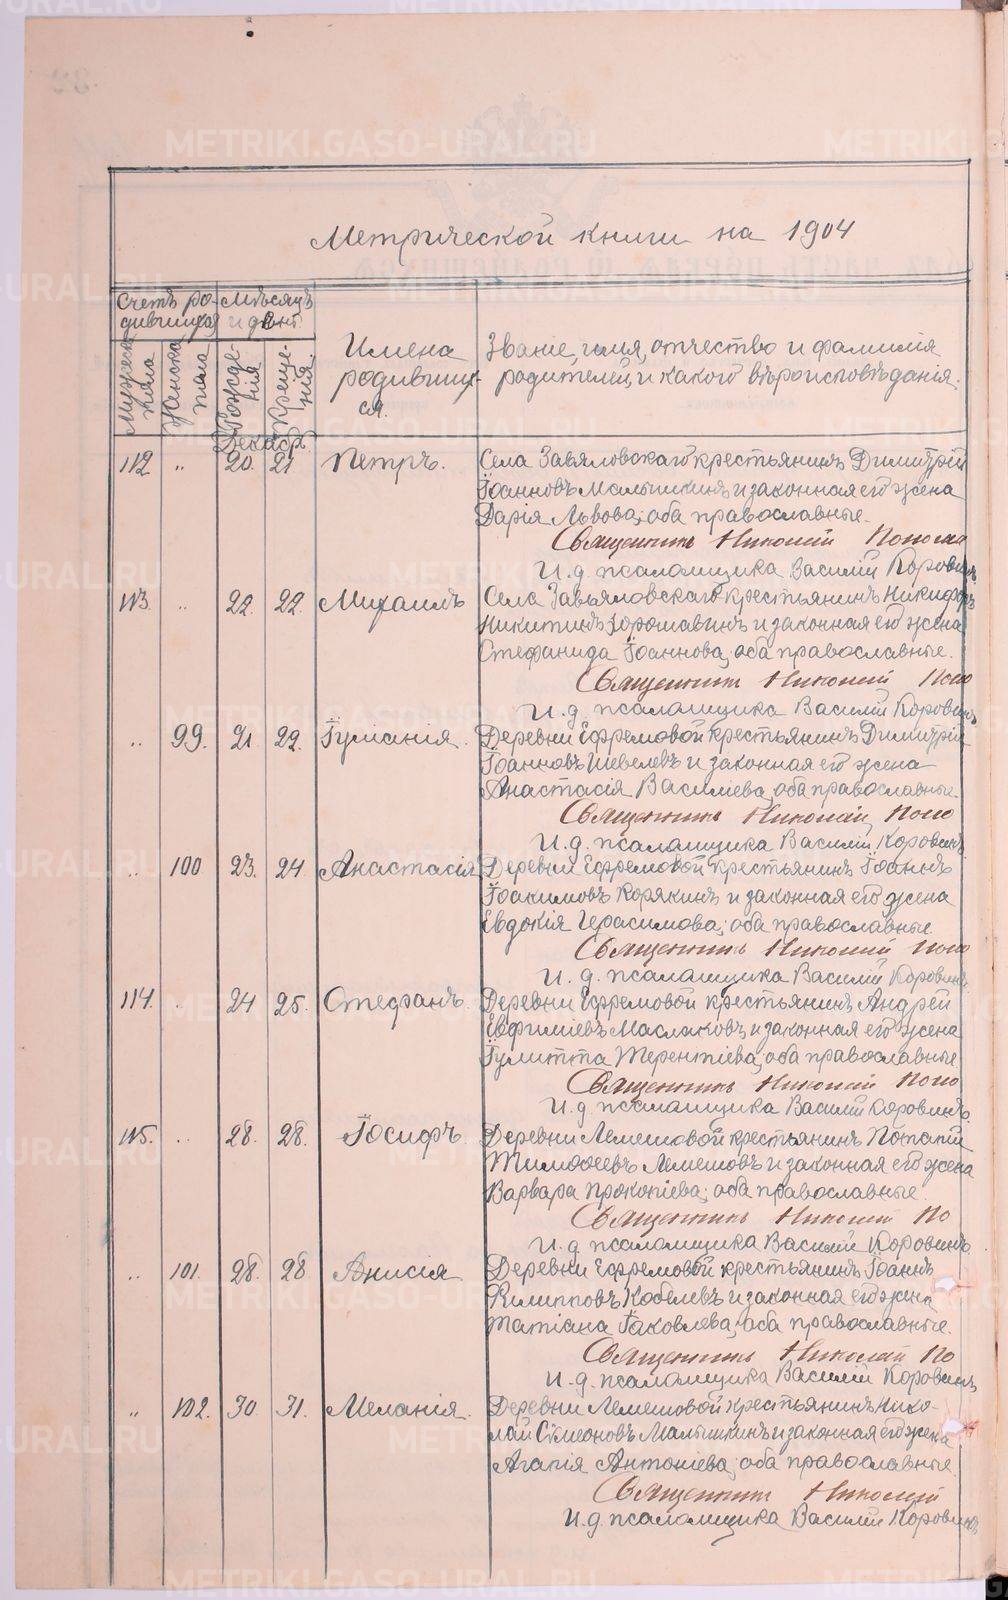 Метрической книги на 1904
Счетъ ро-
дившихся
Мѣсяцъ
и день
Мужеска
пола
Женска
пола
Рожде-
нія
Креще-
нія
Имена
родивших-
ся.
Званіе, имя, отчество и фамилія
родителей, и какого вѣроисповѣданія.
Декабр.
112 " 20. 21 Петръ. Села Завьяловскаго крестьянинъ Димитрій
Іоанновъ Малышкинъ и законная его жена
Дарія Львова, оба православные.
Священникъ Николай
И.д. псаломщика Василій Коровинъ
113. " 22. 22. Михаилъ Села Завьяловскаго крестьянинъ Никифоръ
Никитинъ и законная его жена
Стефанида Іоаннова, оба православные.
Священникъ Николай
И.д. псаломщика Василій Коровинъ
" 99. 21. 22. Іуліанія. Деревни Ефремовой крестьянинъ Димитрій
Іоанновъ Шевелевъ и законная его жена
Анастасія Василіева, оба православные.
Священникъ Николай
И.д. псаломщика Василій Коровинъ
" 100 23. 24 Анастасія Деревни Ефремовой крестьянинъ Іоаннъ
Іоакимовъ Корякинъ и законная его жена
Евдокія Герасимова; оба православные.
Священникъ Николай
И.д. псаломщика Василій Коровинъ
114. " 24 25. Стефанъ. Деревни Ефремовой крестьянинъ Андрей
Евфиміевъ Маслаковъ и законная его жена
Іулитта Терентіева, оба православные
Священникъ Николай
И.д. псаломщика Василій Коровинъ.
115. " 28. 28. Іосифъ. Деревни Лемешовой крестьянинъ Потапій
Тимофеевъ Лемешовъ и законная его жена
Варвара Прокопіева; оба православные.
Священникъ Николай
И.д. псаломщика Василій Коровинъ
" 101. 28. 28 Анисія Деревни Ефремовой крестьянинъ Іоаннъ
Филипповъ Кобелевъ и законная его жена
Татіана Іаковлева, оба православные.
Священникъ Николай
И.д. псаломщика Василій Коровинъ
" 102. 30. 31. Меланія. Деревни Лемешовой крестьянинъ Нико-
лай Сѵмеоновъ Малышкинъ и законная его жена
Агапія Антоніева, оба православные.
Священникъ Николай
И.д. псаломщика Василій Коровинъ
METRIKI.GASO-URAL.RU